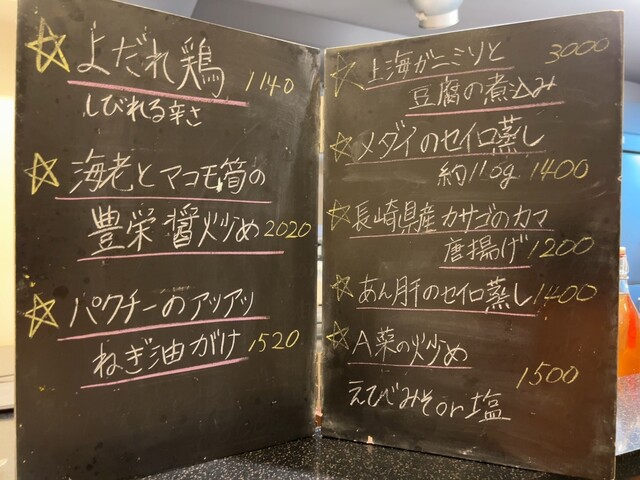 よだれ鶏 1140
しびれる辛さ
海老とマコモ筍の
豊栄醤炒め 2020
パクチーのアツアツ
ねぎ油がけ 1520
上海ガニミソと 3000
豆腐の煮込み
メダイのセイロ蒸し
約110g 1400
長崎県産カサゴのカマ
唐揚げ 1200
あん肝のセイロ蒸し 1400
A菜の炒め
1500
えびみそor塩